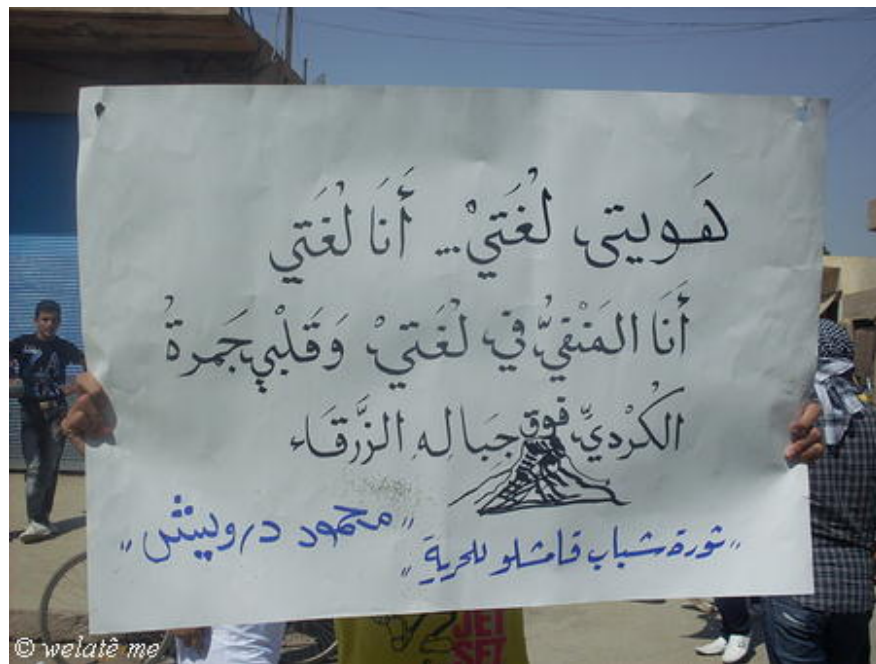 هَويتي لُغَتيْ... أَنَا لُغَتي
أَنَا المَنْفيُّ في لُغَتيْ وَقَلْبي جَمرةُ
الكُرْديِّ فوق جِبَالِهِ الزَّرقَاء
"محمود درويش"
"ثورة شباب قامشلو للحريةِ"
JET
SET
© welatê me